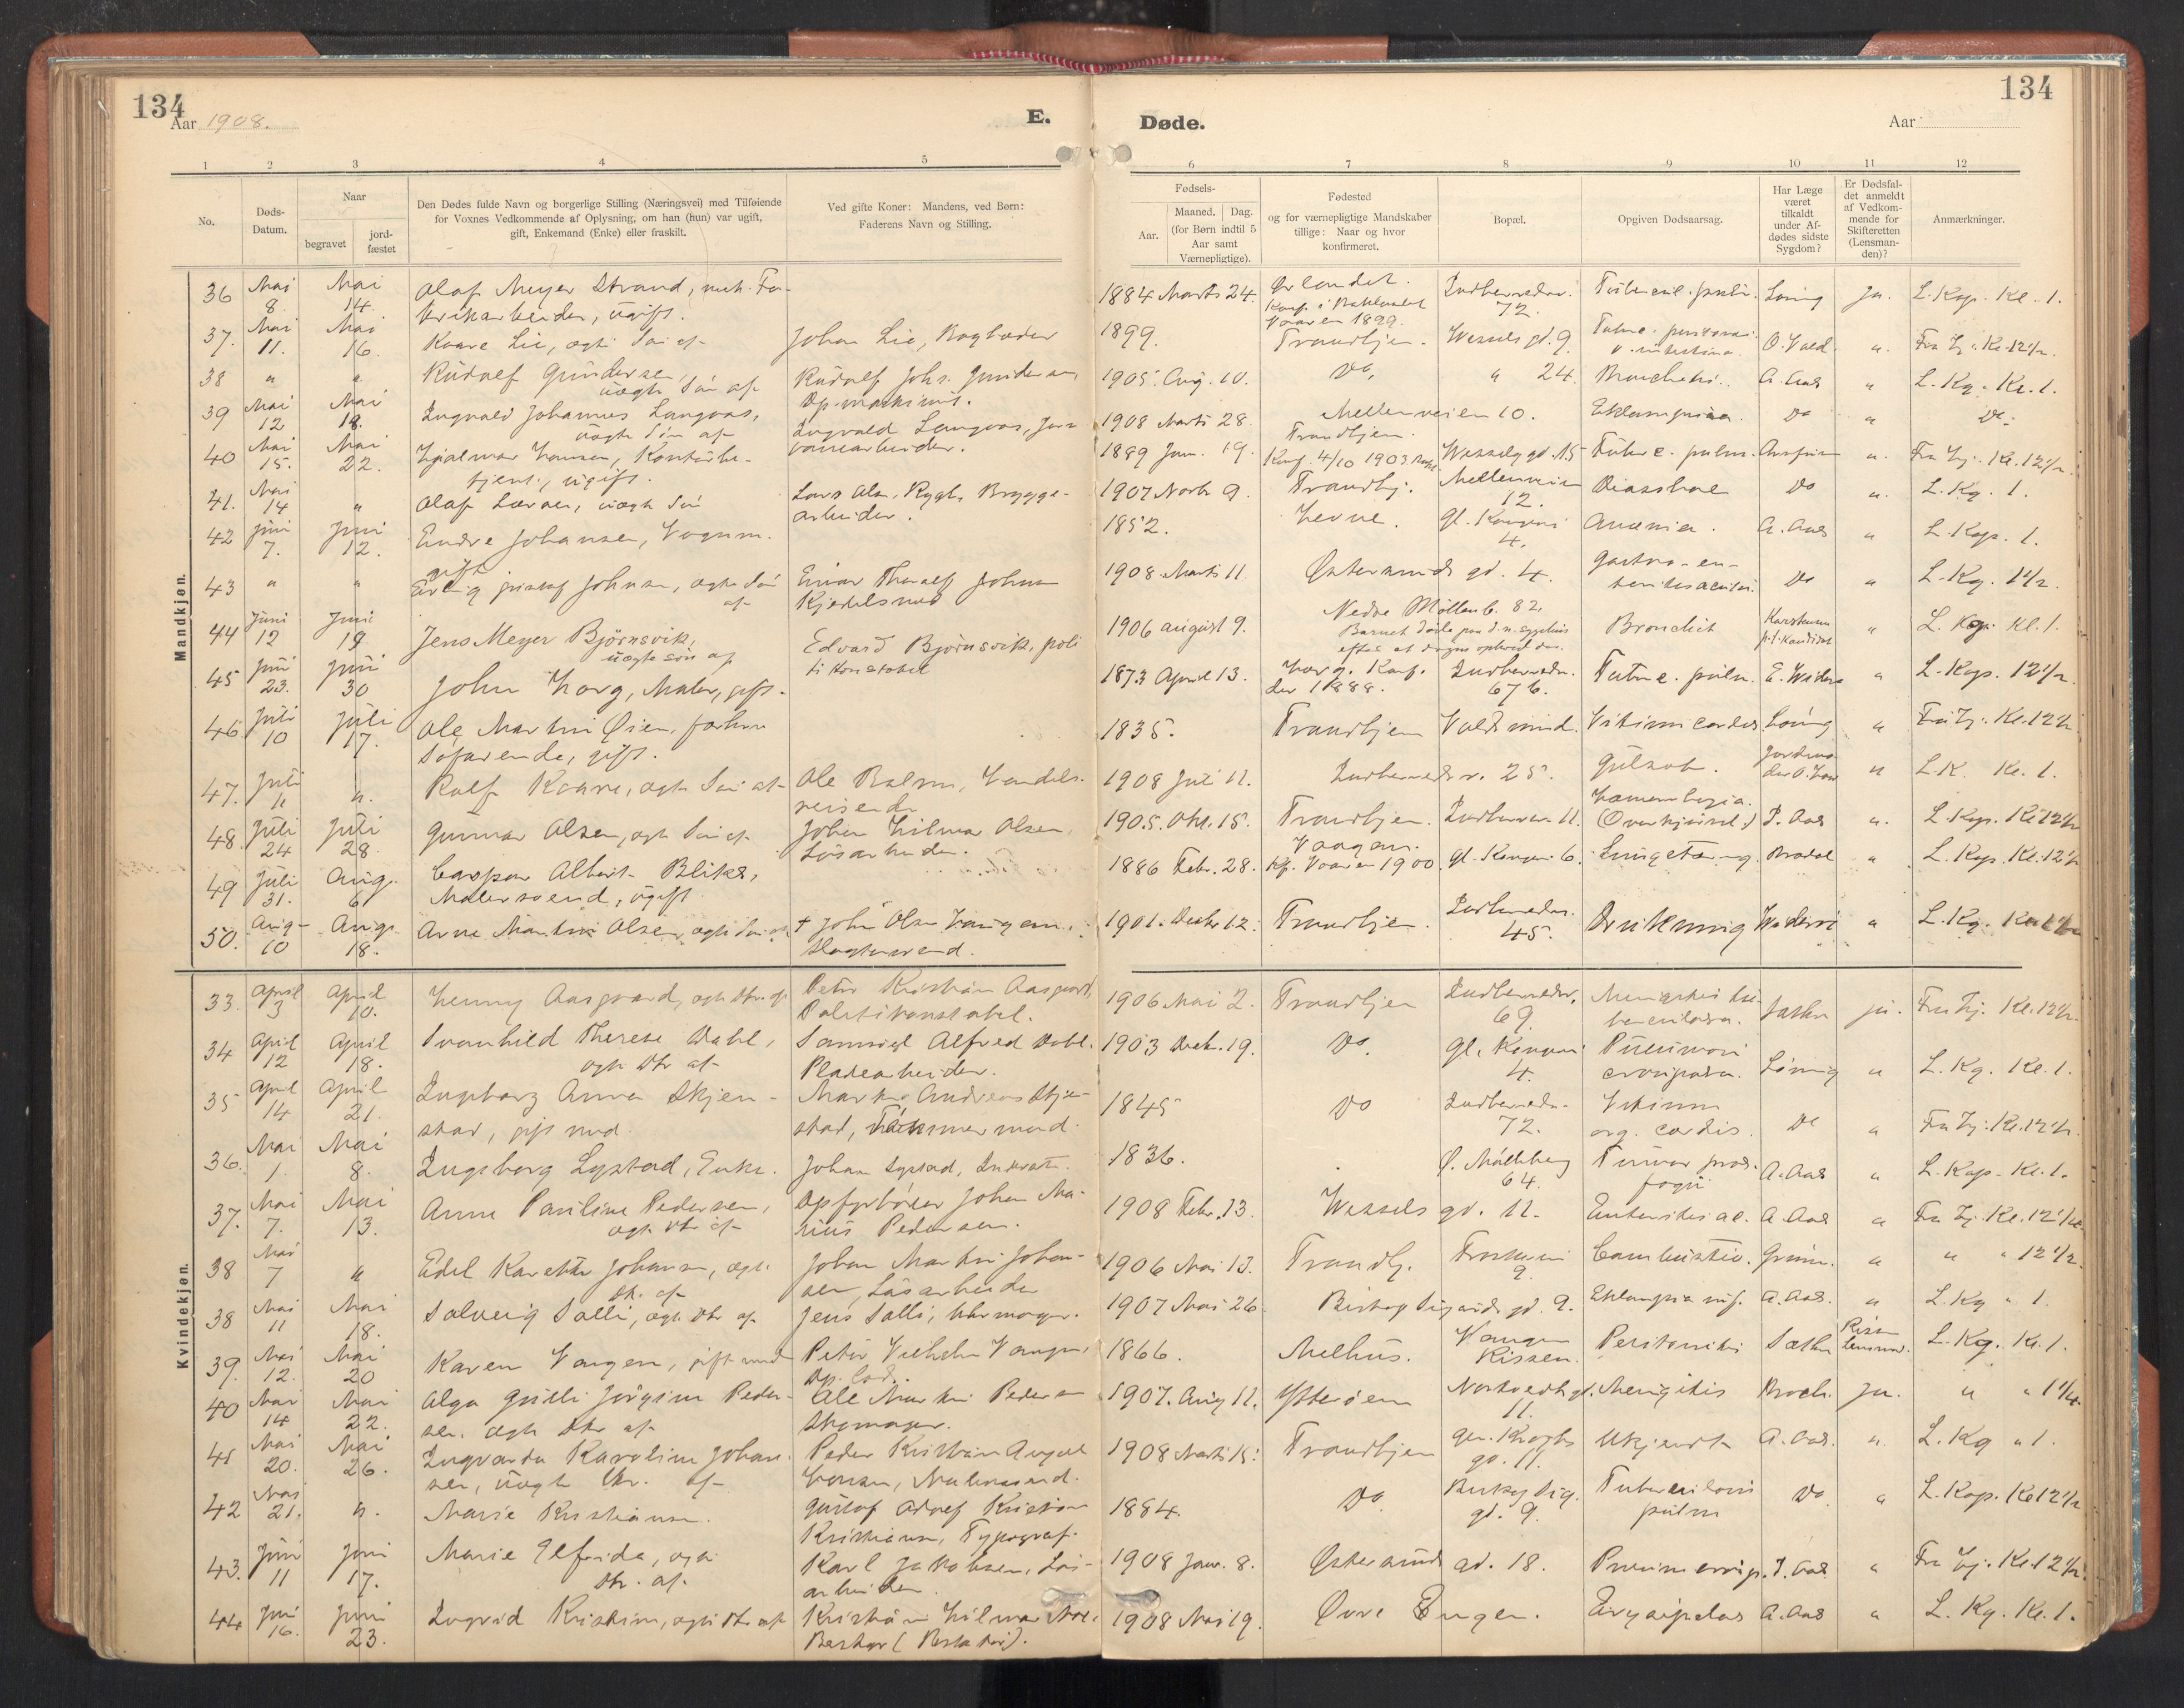 134
Aar 1908.
E.
Døde.
Aar
134
1 2 3 4 5 6 7 8 9 10 11 12
No.
Døds-
Datum.
Naar
begravet
jord-
fæstet
Den Dødes fulde Navn og borgerlige Stilling (Næringsvei) med Tilføiende
for Voxnes Vedkommende af Oplysning, om han (hun) var ugift,
gift, Enkemand (Enke) eller fraskilt.
Ved gifte Koner: Mandens, ved Børn:
Faderens Navn og Stilling.
Fødsels-
Aar.
Maaned. Dag.
(for Børn indtil 5
Aar samt
Værnepligtige).
Fødested
og for værnepligtige Mandskaber
tillige: Naar og hvor
konfirmeret.
Bopæl.
Opgiven Dødsaarsag.
Har Læge
været
tilkaldt
under Af-
dødes sidste
Sygdom?
Er Dødsfal-
det anmeldt
af Vedkom-
mende for
Skifteretten
(Lensman-
den)?
Anmærkninger.
Mandkjøn.
36 Mai 8. Mai 14. Olaf Meyer Strand, Fa-
brikarbeider, ugift.
1884 Marts 24. Ørlandet.
Vaaren 1899.
Indherredsv. 72. Tubercul. pulm. Ja. L. Kap. Kl. 1.
37. Mai 11. Mai 16. Kaare Lie, ægte Søn af Johan Lie, Bagbøder
1899. Trondhjem. Wessels gd. 9. O. Vald. Fra Hj. Kl. 12 1/2.
38 " " Rudolf Gundersen, uægte Søn af Rudolf Johs. Gundersen,
1905. Aug. 10. Do, " 24. A. Aas " L. Kg. Kl. 1.
39 Mai 12 Mai 18. Ingvald Johannes Langaas,
uægte Søn af Ingvald Langaas,
1908 Marts 28 Mellemveien 10. Eklampsia. Do " Do.
40 Mai 15. Mai 22. Hjalmar Hansen, Kontorbe-
tjent, ugift.
1889 Jan. 19. Trondhjem.
Konf. 4/10 1903 Wesselsgd. 15 Tuberc. pulm. Fra Hj. Kl. 12 1/2.
41. Mai 14 " Olaf Larsen, uægte Søn Lars Olsen Rygh, Brygge-
arbeider.
1907 Novbr 9. Trondhj. Mellemveien
12. Diarrhoe Do " L. Kg. 1.
42 Juni 7. Juni 12. Endre Johansen, Vognm.
gift
1852. Hevne. Gl. Kongevei
4. Anæmia. A. Aas " L. Kap. 1.
43 " " Erling Gustaf Johnsen, ægte Søn
af Einar Thoralf Johnsen
Kjedelsmed
1908 Marts 11. Østersunds gd. 4. Gastro-en-
teritis acuta. Do " L. Kg. 1 1/2.
44 Juni 12 Juni 19 Jens Meyer Bjørnsvik,
uægte søn af Edvard Bjørnsvik, poli
ti konstabel
1906 august 9. Nedre Møllenb. 82.
Bronchit " L. Kap. kl. 1.
45 Juni 23. Juni 30 John Horg, Maler, gift.
1873 April 13. Horg. Konf.
der 1888. Indherredsv.
67 b. Tuberc. pulm. " L. Kap. 12 1/2.
46 Juli 10 Juli 17. Ole Martin Øien, forhen
Søfarende, gift.
1835. Trondhjem Vitium cordis " Fra Hj. Kl. 12 1/2
47. Juli 11 ". Rolf Kaare, ægte Søn af Ole Balsen, Handels-
reisende
1908 Juli 11. Indherredsv. 25. Gulsot. " L. K. Kl. 1.
48. Juli 24 Juli 28 Gunnar Olsen, ægte Søn af Johan Hilmar Olsen,
Løsarbeider.
1905. Okt. 15. Trondhjem. Indherredsv. 11. " L. Kap. Kl. 12 1/2
49 Juli 31. Aug. 6 Caspar Albert Bliks,
Malersvend, ugift
1886 Febr. 28. Vaagan.
Kf. Vaaren 1900. Gl. Kongev. 6. Lungetæring. Brodal " L. Kap. Kl. 12 1/2
50. Aug. 10 Aug. 18. Arne Martin Olsen, ægte Søn af † John Olsen Haugen,
Slagtersvend.
1901. Decbr 12. Trondhjem. Indherredsv.
45. Drukning " L. Kg.
Kvindekjøn.
33. April 3 April 10. Henny Aasgaard, ægte Dtr. af Peter Kristian Aasgaard,
Politikonstabel.
1906 Mai 2. Trondhjem Indherredsv.
69. Meningitis tu-
berculosa. Sæther ja. Fra Hj. Kl. 12 1/2.
34 April 12 April 18. Svanhild Therese Dahl,
ægte Dtr af Samuel Alfred Dahl.
Pladearbeider.
1903 Decbr. 19. Do. Gl. Kongevei
4. Pneumoni
crouposa. " L. Kg. Kl. 1.
35 April 14 April 21. Ingeborg Anna Skjen-
stad, gift med Martin Andreas Skjen-
stad, Tømmermand.
1845 Do Indherredsv.
72. Vitium
org. cordis. Do " Fra Hj. Kl. 12 1/2.
36. Mai 1 Mai 8. Ingeborg Lystad, Enke. Johan Lystad,
1836. Ø. Møllenberg
64. A. Aas " L. Kap. Kl. 1.
37. Mai 7. Mai 13. Anna Pauline Pedersen,
ægte Dtr af Opfyrbøder Johan Ma-
rius Pedersen.
1908 Febr. 13. Wessels gd. 11. Enteritis ac. A. Aas " Fra Hj. Kl. 12 1/2
38 Mai 7 " Edel Karette Johansen, ægte
Dtr. af Johan Martin Johan-
sen, Løsarbeider
1906 Mai 13. Trondhj. 9. Combustio. " " " 12 1/2.
38 Mai 11 Mai 18. Solveig Salli, ægte Dtr af Jens Salli, Uhrmager.
1907 Mai 26 Biskop Sigurds gd. 9. Eklampsia inf. A. Aas. " L. Kg " 1.
39. Mai 12. Mai 20 Karen Vangen, gift med Peter Vilhelm Vangen,
1866. Melhus. Vangen
Rissen. Peritonitis Sæther Rissen
lensmd. L. Kg. Kl. 1.
40 Mai 14 Mai 22. Olga Gjølli Jørgine Peder-
sen, ægte Dtr af Ole Martin Pedersen
Skomager.
1907. Aug 11. Ytterøen
11. Mengitis Ja. " "
41 Mai 20. Mai 26. Ingvarda Karoline Johan-
sen, uægte Dtr. af Peder Kristian August
Hansen, Malersvend.
1908 Marts 15. Trondhjem Gen. Kroghs
gd. 11. Ukjendt A. Aas. ". L. Kg " 1.
42 Mai 21. ". Marie Kristiansen. Gustaf Adolf Kristian
Kristiansen, Typograf.
1884. Do Biskop Sig.
gd. 9. Tuberculosis
pulm Do " L. Kap. Kl 12 1/2
43. Juni 11 Juni 17. Marie Elfrida, ægte
Dtr. af Karl Jakobsen, Løs-
arbeider.
1908 Jan. 8. Østersunds gd. 18. " Fra Hj. Kl. 12 1/2.
44 Juni 16. Juni 23. Ingrid Kristine, ægte Dtr af Kristian Hilmar
1908 Mai 19. Øvre Engen. Erysipelas A. Aas " L. Kg. Kl. 1.